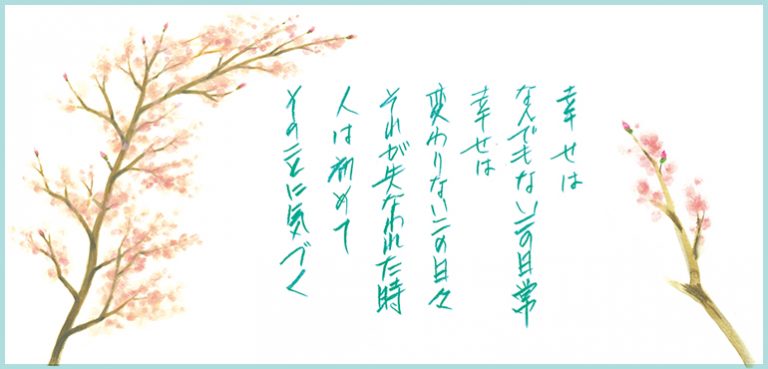 幸せは
なんでもないこの日常
幸せは
変わりないこの日々
それが失なわれた時
人は初めて
そのことに気づく